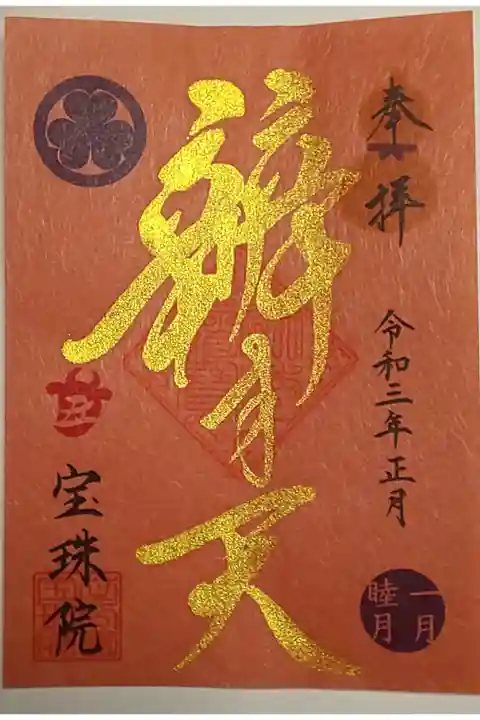 奉拝
令和三年正月
一月
睦月
辨才天
宝珠院